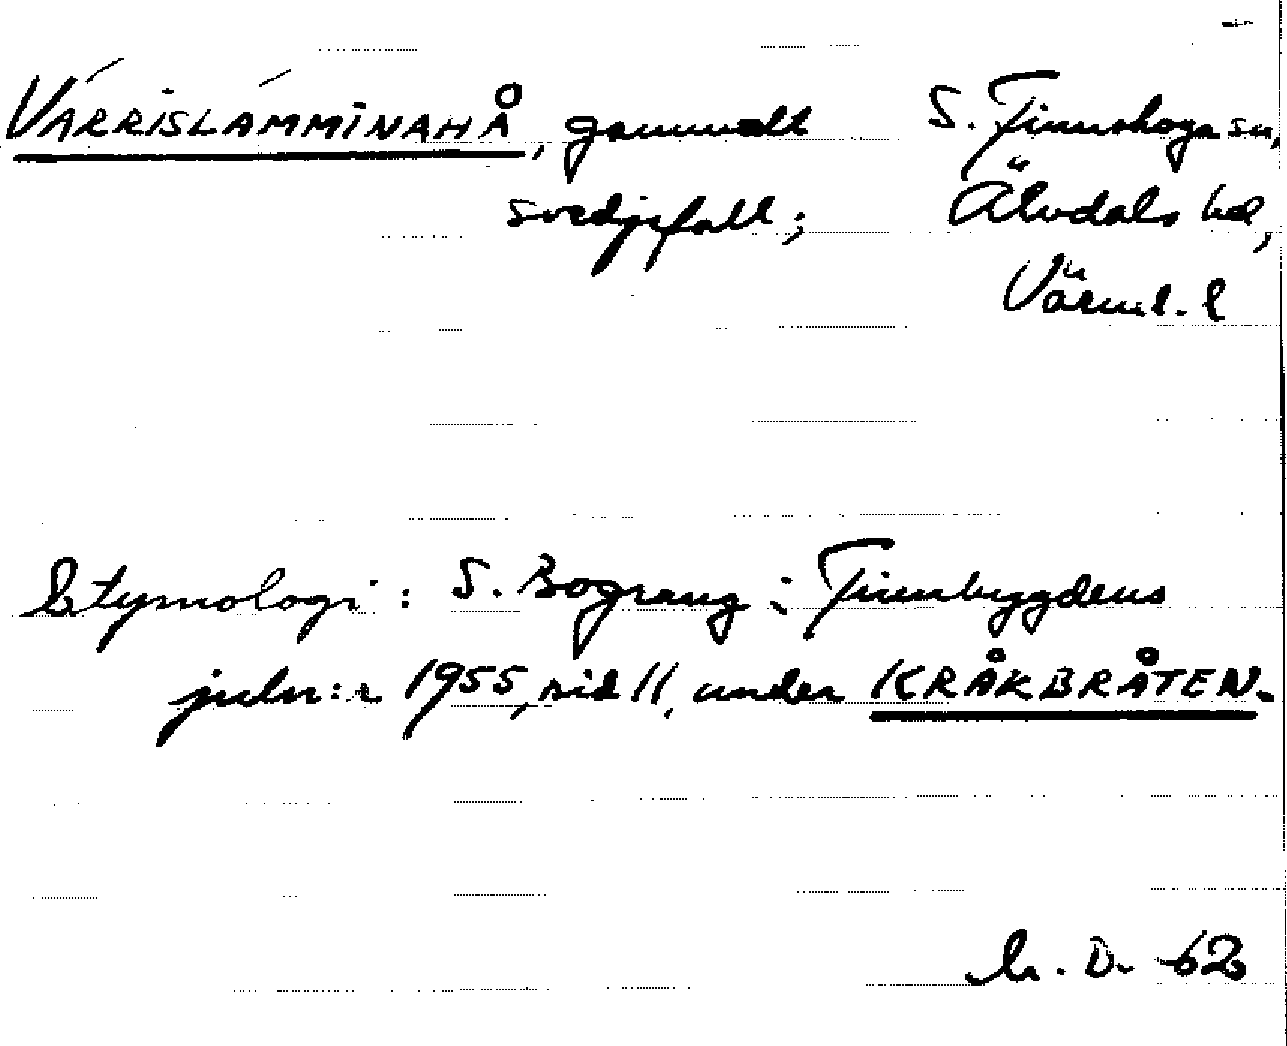 VÁRRISLÁMMINAHÅ, gammalt S. Finnskoga sn,
svedjefall; Älvdals hd,
Värml. l
Etymologi: S. Bograng: Finnbygdens
julnr:r 1955, sid 11, under KRÅKBRÅTEN.
D. -62